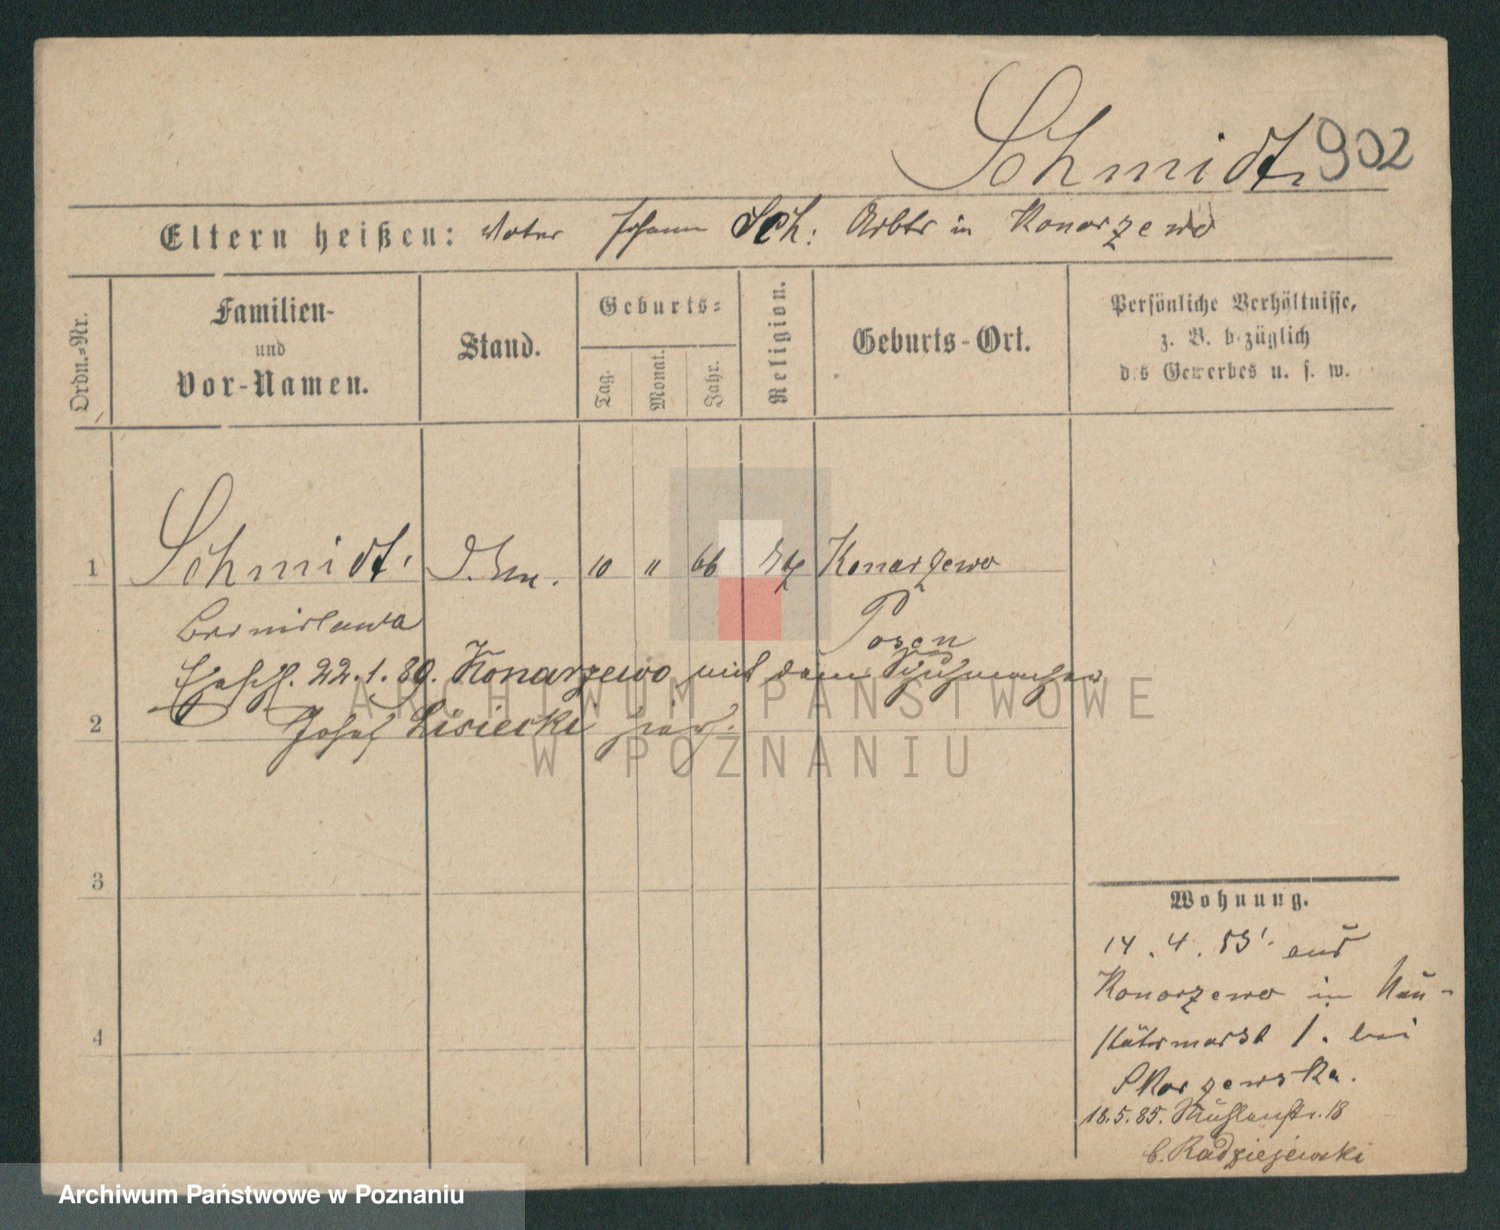 Schmidt, 902
Eltern heißen: Vater Johann Sch: Arbtr in Konarzewo
Ordn.-Nr.
Familien-
und
Vor-Namen.
Stand.
Geburts-
Tag.
Monat.
Jahr.
Religion.
Geburts-Ort.
Persönliche Verhältnisse,
z. B. bezüglich
des Gewerbes u. s. w.
1 Schmidt. 10 11 66 Konarzewo
Bronislawa Posen
Ehschl. 22.1.89. Konarzewo mit dem Schuhmacher
2 Josef Lisiecki hier.
3
4
Wohnung.
14.4.83. aus
Konarzewo in Neu-
städtermarkt 1. bei
Skorzewska.
18.5.85. Mühlenstr. 18
b. Radziejewski
ARCHIWUM PAŃSTWOWE
W POZNANIU
Archiwum Państwowe w Poznaniu